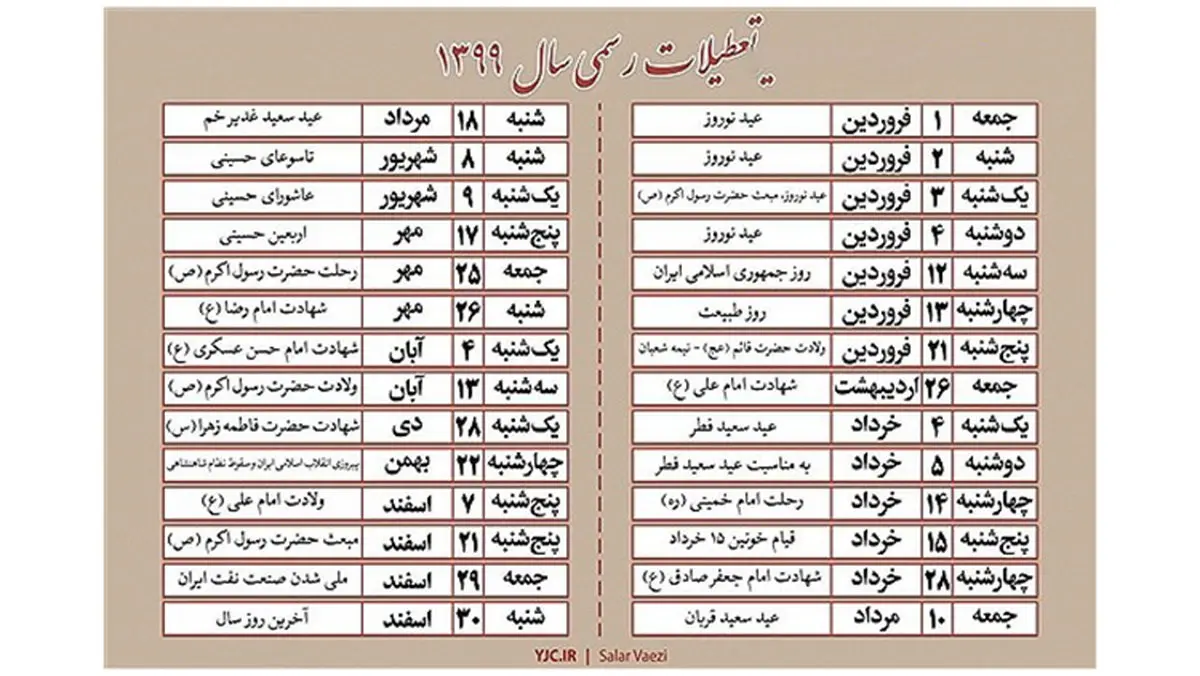 تعطیلات رسمی سال ۱۳۹۹
جمعه ۱ فروردین عید نوروز
شنبه ۲ فروردین عید نوروز
یک‌شنبه ۳ فروردین عید نوروز، مبعث حضرت رسول اکرم (ص)
دوشنبه ۴ فروردین عید نوروز
سه‌شنبه ۱۲ فروردین روز جمهوری اسلامی ایران
چهارشنبه ۱۳ فروردین روز طبیعت
پنج‌شنبه ۲۱ فروردین ولادت حضرت قائم (عج) - نیمه شعبان
جمعه ۲۶ اردیبهشت شهادت امام علی (ع)
یک‌شنبه ۴ خرداد عید سعید فطر
دوشنبه ۵ خرداد به مناسبت عید سعید فطر
چهارشنبه ۱۴ خرداد رحلت امام خمینی (ره)
پنج‌شنبه ۱۵ خرداد قیام خونین ۱۵ خرداد
چهارشنبه ۲۸ خرداد شهادت امام جعفر صادق (ع)
جمعه ۱۰ مرداد عید سعید قربان
شنبه ۱۸ مرداد عید سعید غدیر خم
شنبه ۸ شهریور تاسوعای حسینی
یک‌شنبه ۹ شهریور عاشورای حسینی
پنج‌شنبه ۱۷ مهر اربعین حسینی
جمعه ۲۵ مهر رحلت حضرت رسول اکرم (ص)
شنبه ۲۶ مهر شهادت امام رضا (ع)
یک‌شنبه ۴ آبان شهادت امام حسن عسکری (ع)
سه شنبه ۱۳ آبان ولادت حضرت رسول اکرم (ص)
یک‌شنبه ۲۸ دی شهادت حضرت فاطمه زهرا (س)
چهارشنبه ۲۲ بهمن پیروزی انقلاب اسلامی ایران و سقوط نظام شاهنشاهی
پنج‌شنبه ۷ اسفند ولادت امام علی (ع)
پنج‌شنبه ۲۱ اسفند مبعث حضرت رسول اکرم (ص)
جمعه ۲۹ اسفند ملی شدن صنعت نفت ایران
شنبه ۳۰ اسفند آخرین روز سال
YJC.IR | Salar Vaezi